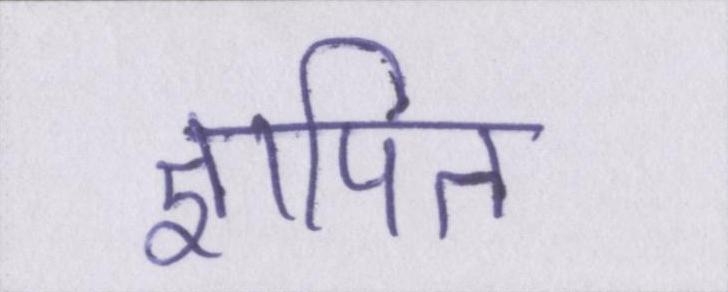 ज्ञापित